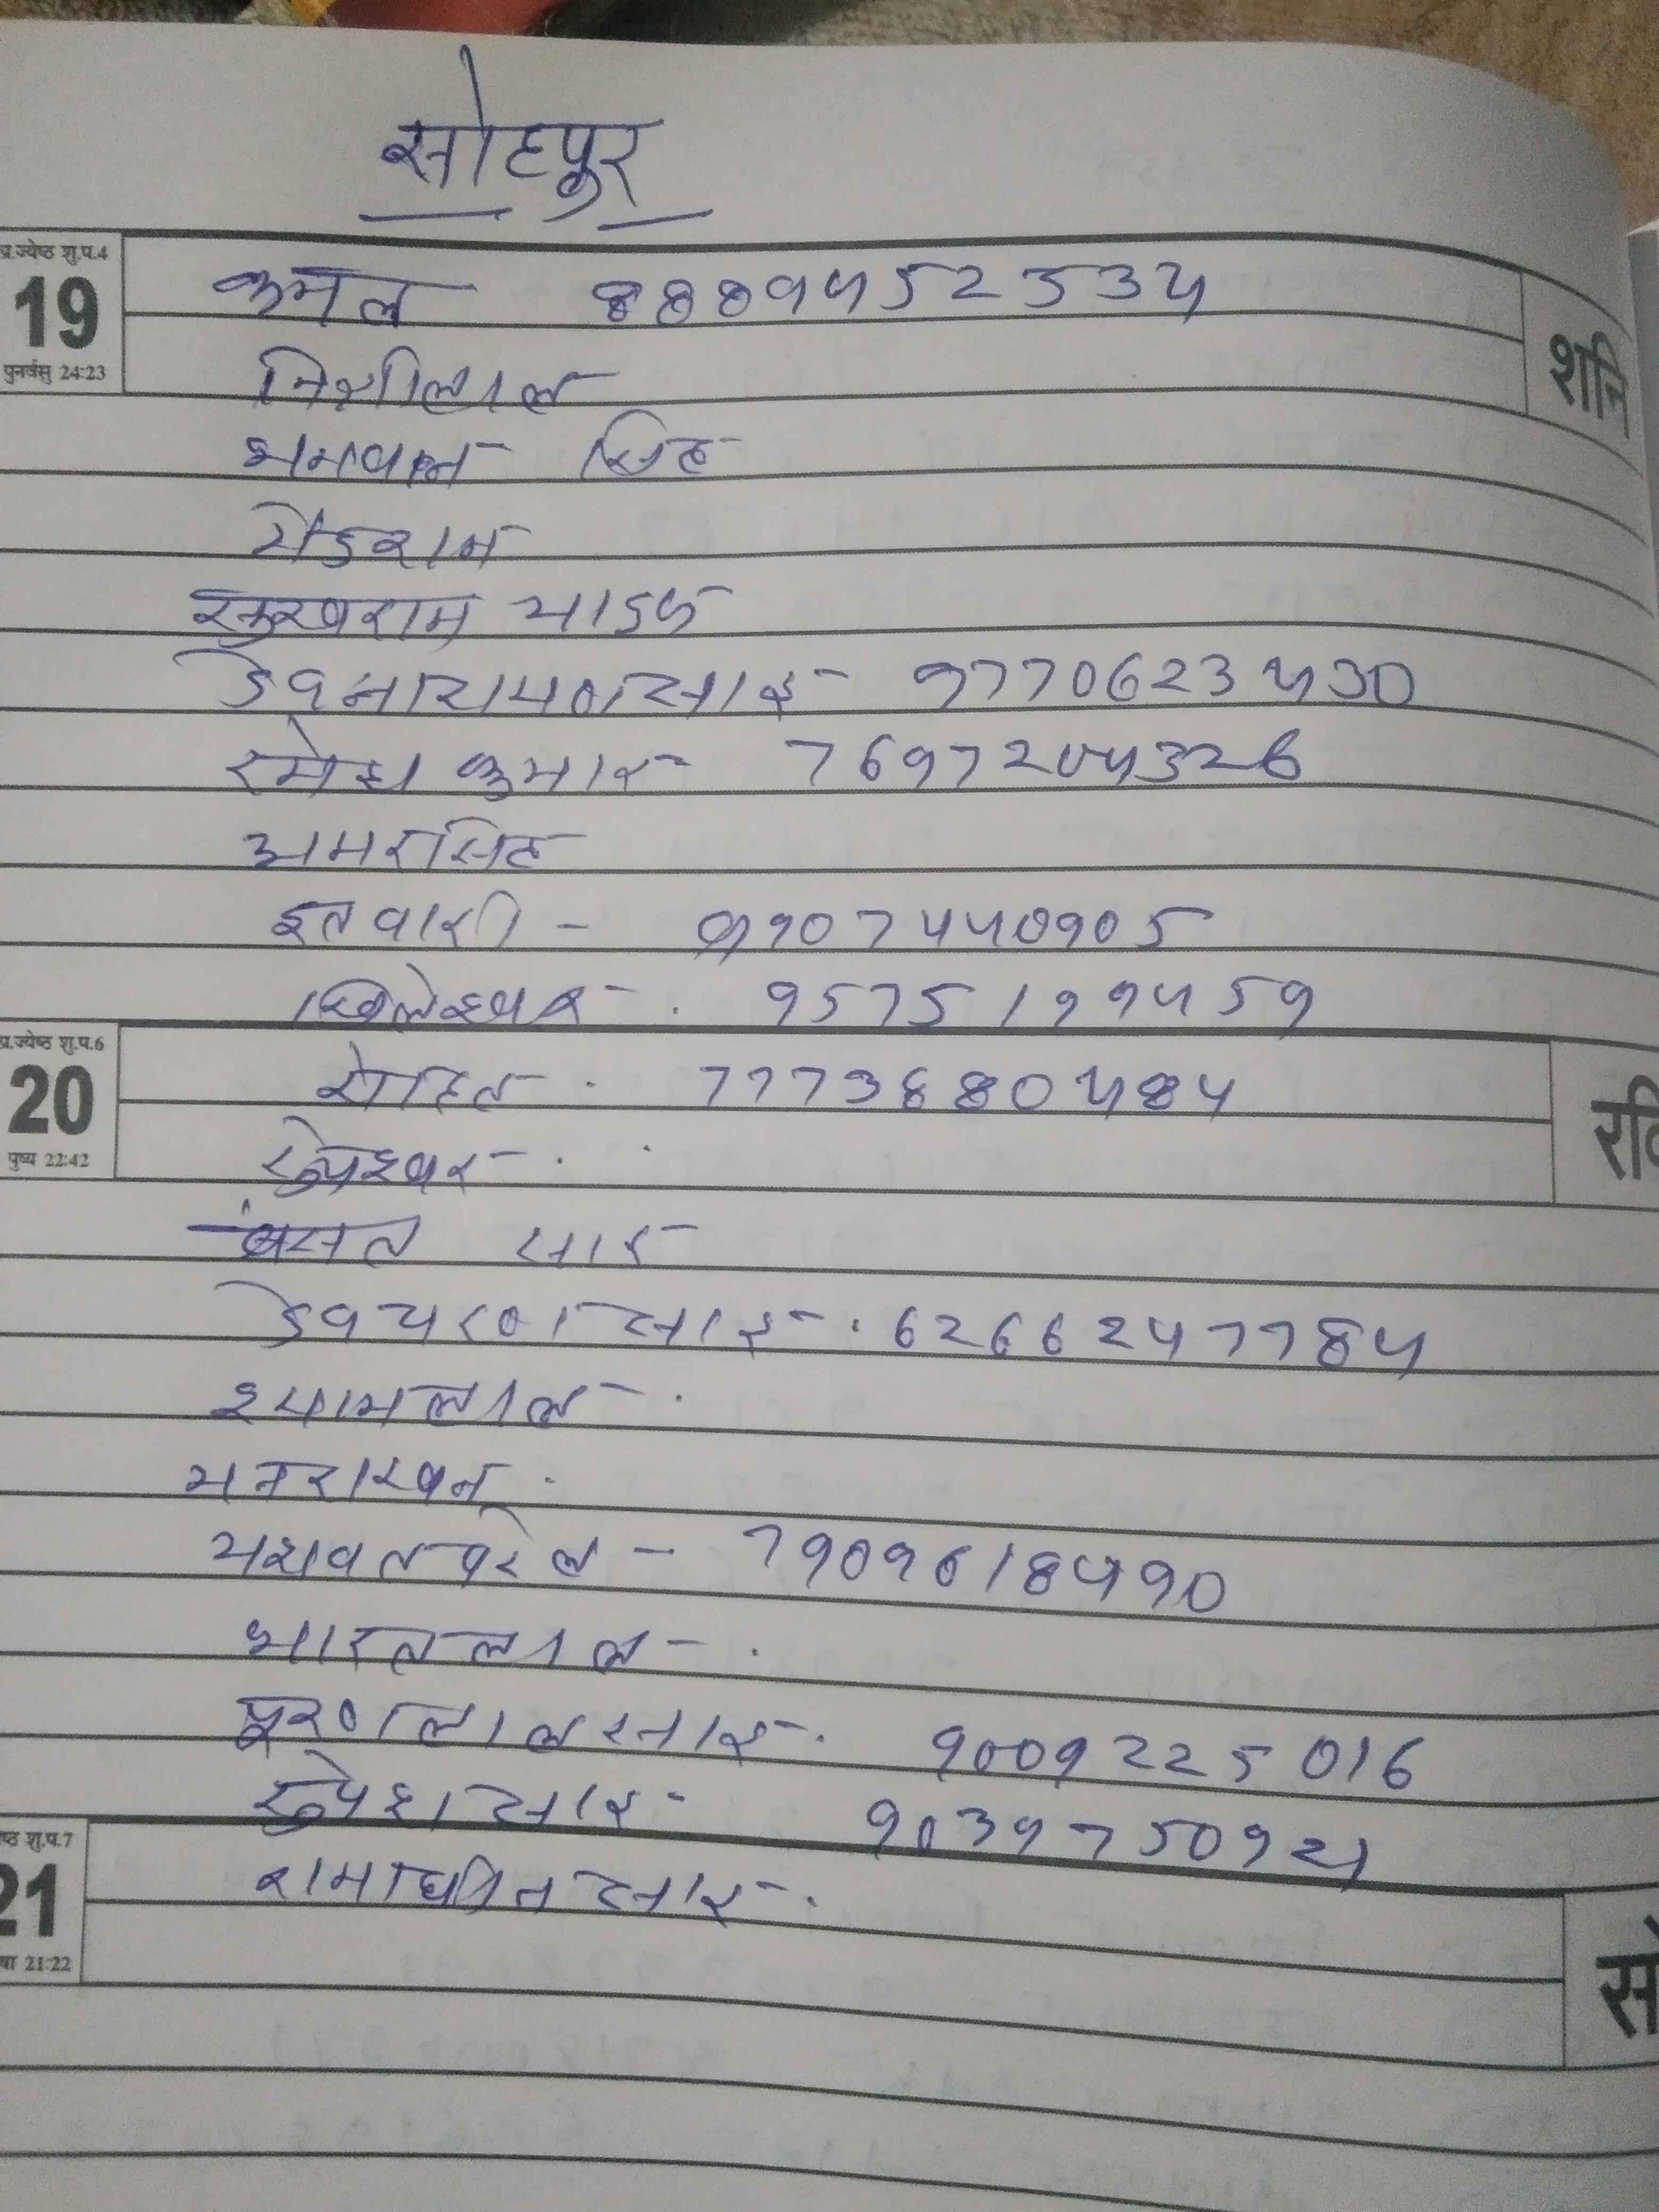 सोहपुर
प्र.ज्येष्ठ शु.प.4
19
पुनर्वसु 24:23
शनि
कमल 8889452534
भगवान सिह
सुखराम यादव
देवनारायण साइ - 9770623430
रमेश कुमार - 7697204326
अमरसिह
इतवारी - 9907440905
खिलेश्वर - 9575199459
प्र.ज्येष्ठ शु.प.6
20
पुष्य 22:42
रवि
रोहित - 7773880484
रूपेश्वर -
बंसत साइ
देवचरण साइ - 6266247784
श्यामलाल -
मनराखन
यशवत पटेल - 7909618490
भारतलाल -
पूरणलाल साइ - 9009225016
रूपेश साइ - 9039750921
शु.प.7
21
21:22
सो
रामाधीन साइ -